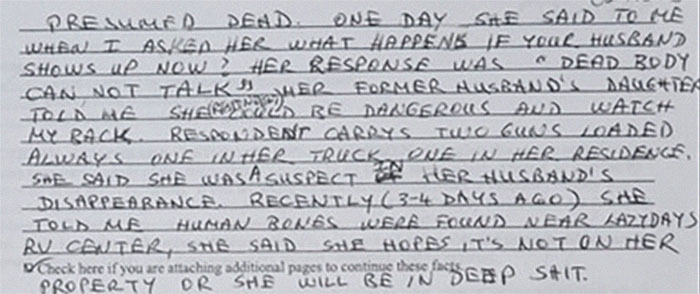 PRESUMED DEAD. ONE DAY SHE SAID TO ME
WHEN I ASKED HER WHAT HAPPENS IF YOUR HUSBAND
SHOWS UP NOW? HER RESPONSE WAS " DEAD BODY
CAN NOT TALK" HER FORMER HUSBAND'S DAUGHTER
TOLD ME SHE (RESPONDENT) COULD BE DANGEROUS AND WATCH
MY BACK. RESPONDENT CARRYS TWO GUNS LOADED
ALWAYS ONE IN HER TRUCK ONE IN HER RESIDENCE.
SHE SAID SHE WAS A SUSPECT IN HER HUSBAND'S
DISAPPEARANCE. RECENTLY (3-4 DAYS AGO) SHE
TOLD ME HUMAN BONES WERE FOUND NEAR LAZYDAYS
RV CENTER, SHE SAID SHE HOPES IT'S NOT ON HER
Check here if you are attaching additional pages to continue these facts.
PROPERTY OR SHE WILL BE IN DEEP SHIT.